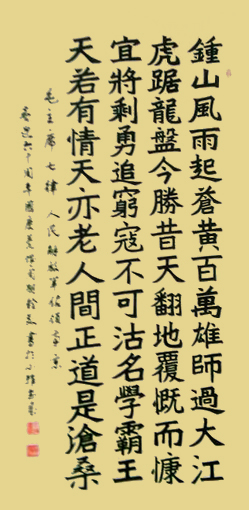 鍾山風雨起蒼黃百萬雄師過大江
虎踞龍盤今勝昔天翻地覆慨而慷
宜將剩勇追窮寇不可沽名學霸王
天若有情天亦老人間正道是滄桑
毛主席七律人民解放軍佔領南京
六十周年國慶書於小雅